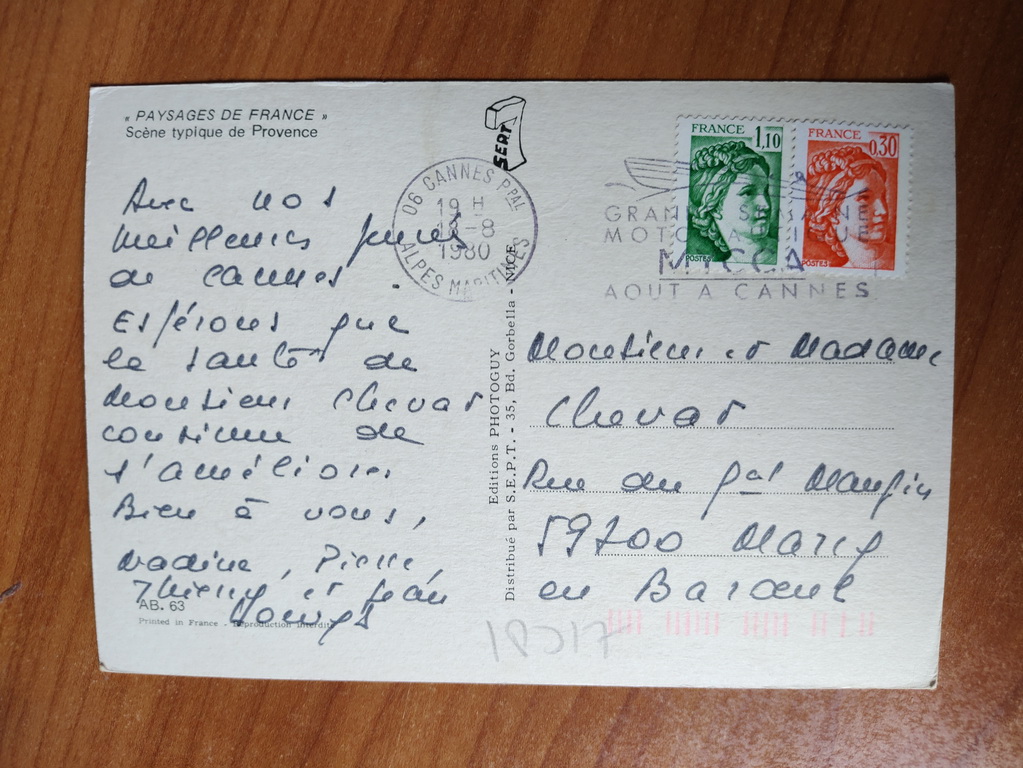 « PAYSAGES DE FRANCE »
Scène typique de Provence
SEPT
06 CANNES PPAL
19 H
13-8
1980
ALPES MARITIMES
GRANDE SEMAINE
AOUT A CANNES
FRANCE 1,10
POSTES
FRANCE 0,30
POSTES
Avec nos
meilleures
de Cannes
Espérons que
la santé de
Monsieur Chevat
continue de
s'améliorer
Bien à vous,
Nadine, Pierre,
Thierry et Jean
Editions PHOTOGUY
Distribué par S.E.P.T. - 35, Bd. Gorbella - NICE
Monsieur et Madame
Chevat
Rue du Gal
59700 Marcq
en Baroeul
AB. 63
Printed in France - Reproduction interdite